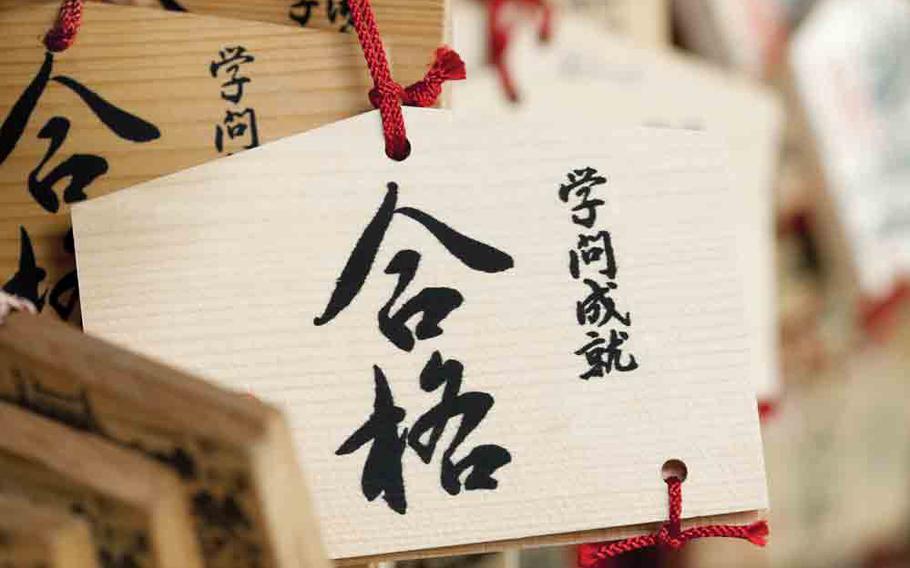 学問成就
合格
学問
合